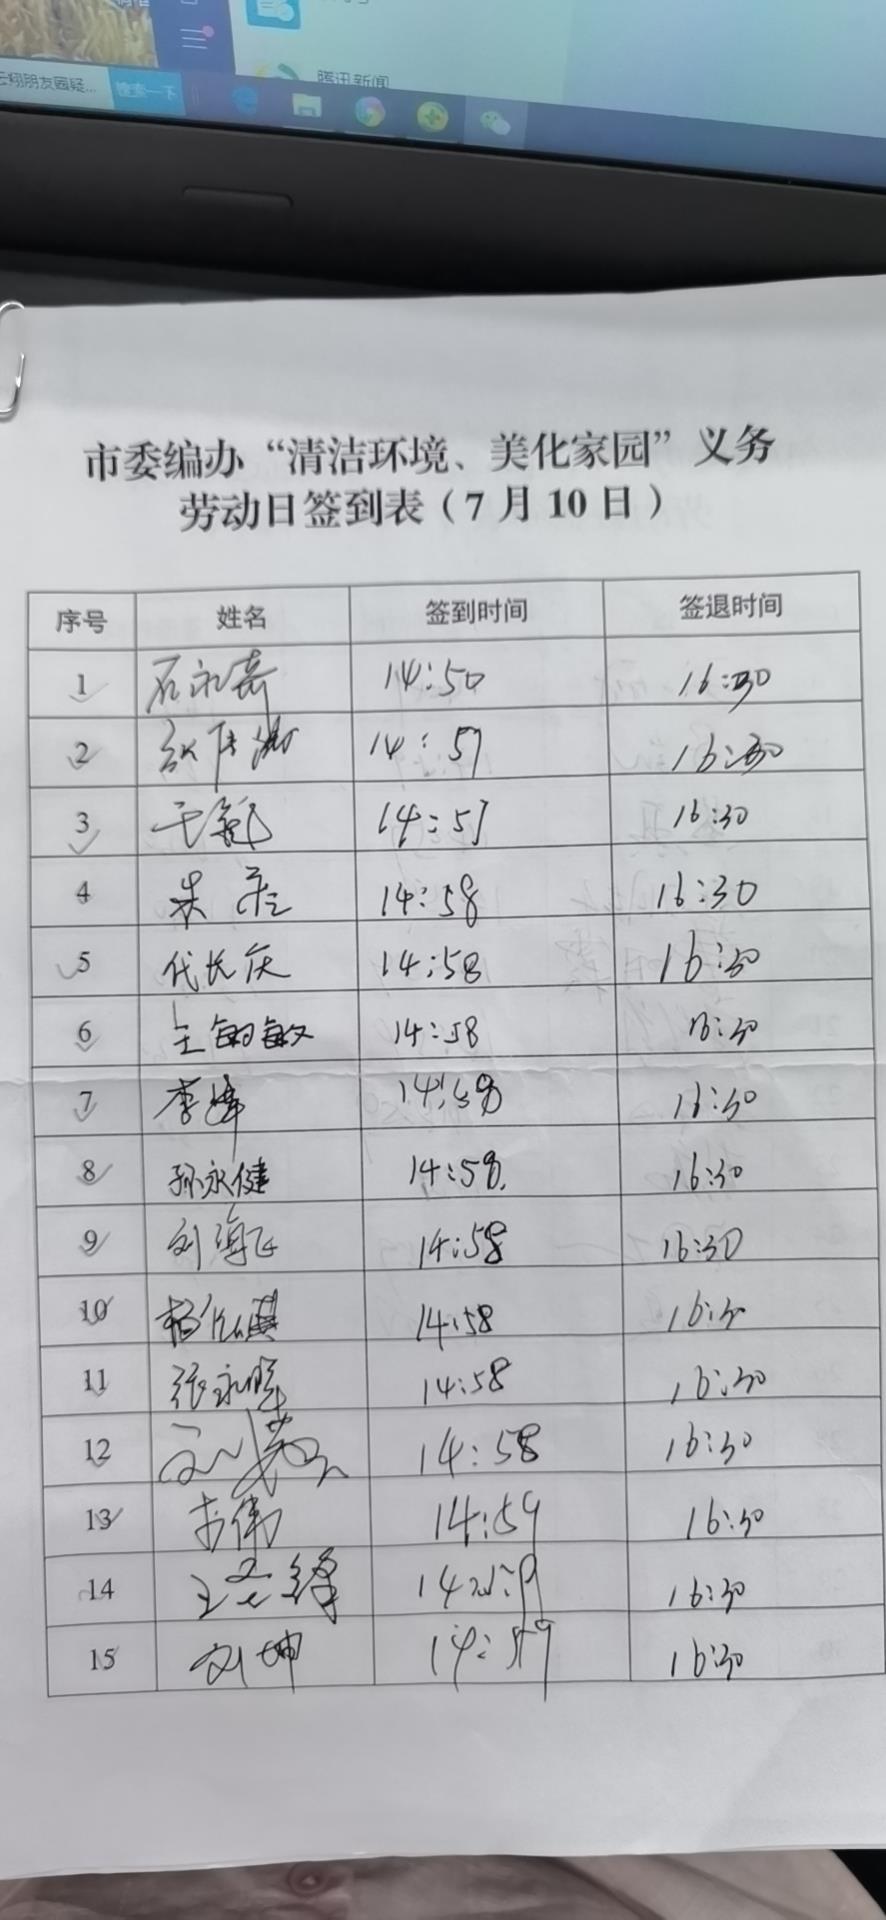 云翔朋友园疑... 搜索一下
腾讯新闻
市委编办“清洁环境、美化家园”义务
劳动日签到表（7月10日）
序号 姓名 签到时间 签退时间
1 石永奇 14:50 16:30
2 14:57 16:30
3 14:57 16:30
4 朱 14:58 16:30
5 代长庆 14:58 16:30
6 王敏敏 14:58 16:30
7 李烽 14:58 16:30
8 孙永健 14:58 16:30
9 刘海飞 14:58 16:30
10 14:58 16:30
11 张永胜 14:58 16:30
12 14:58 16:30
13 李伟 14:59 16:30
14 14:59 16:30
15 刘坤 14:59 16:30